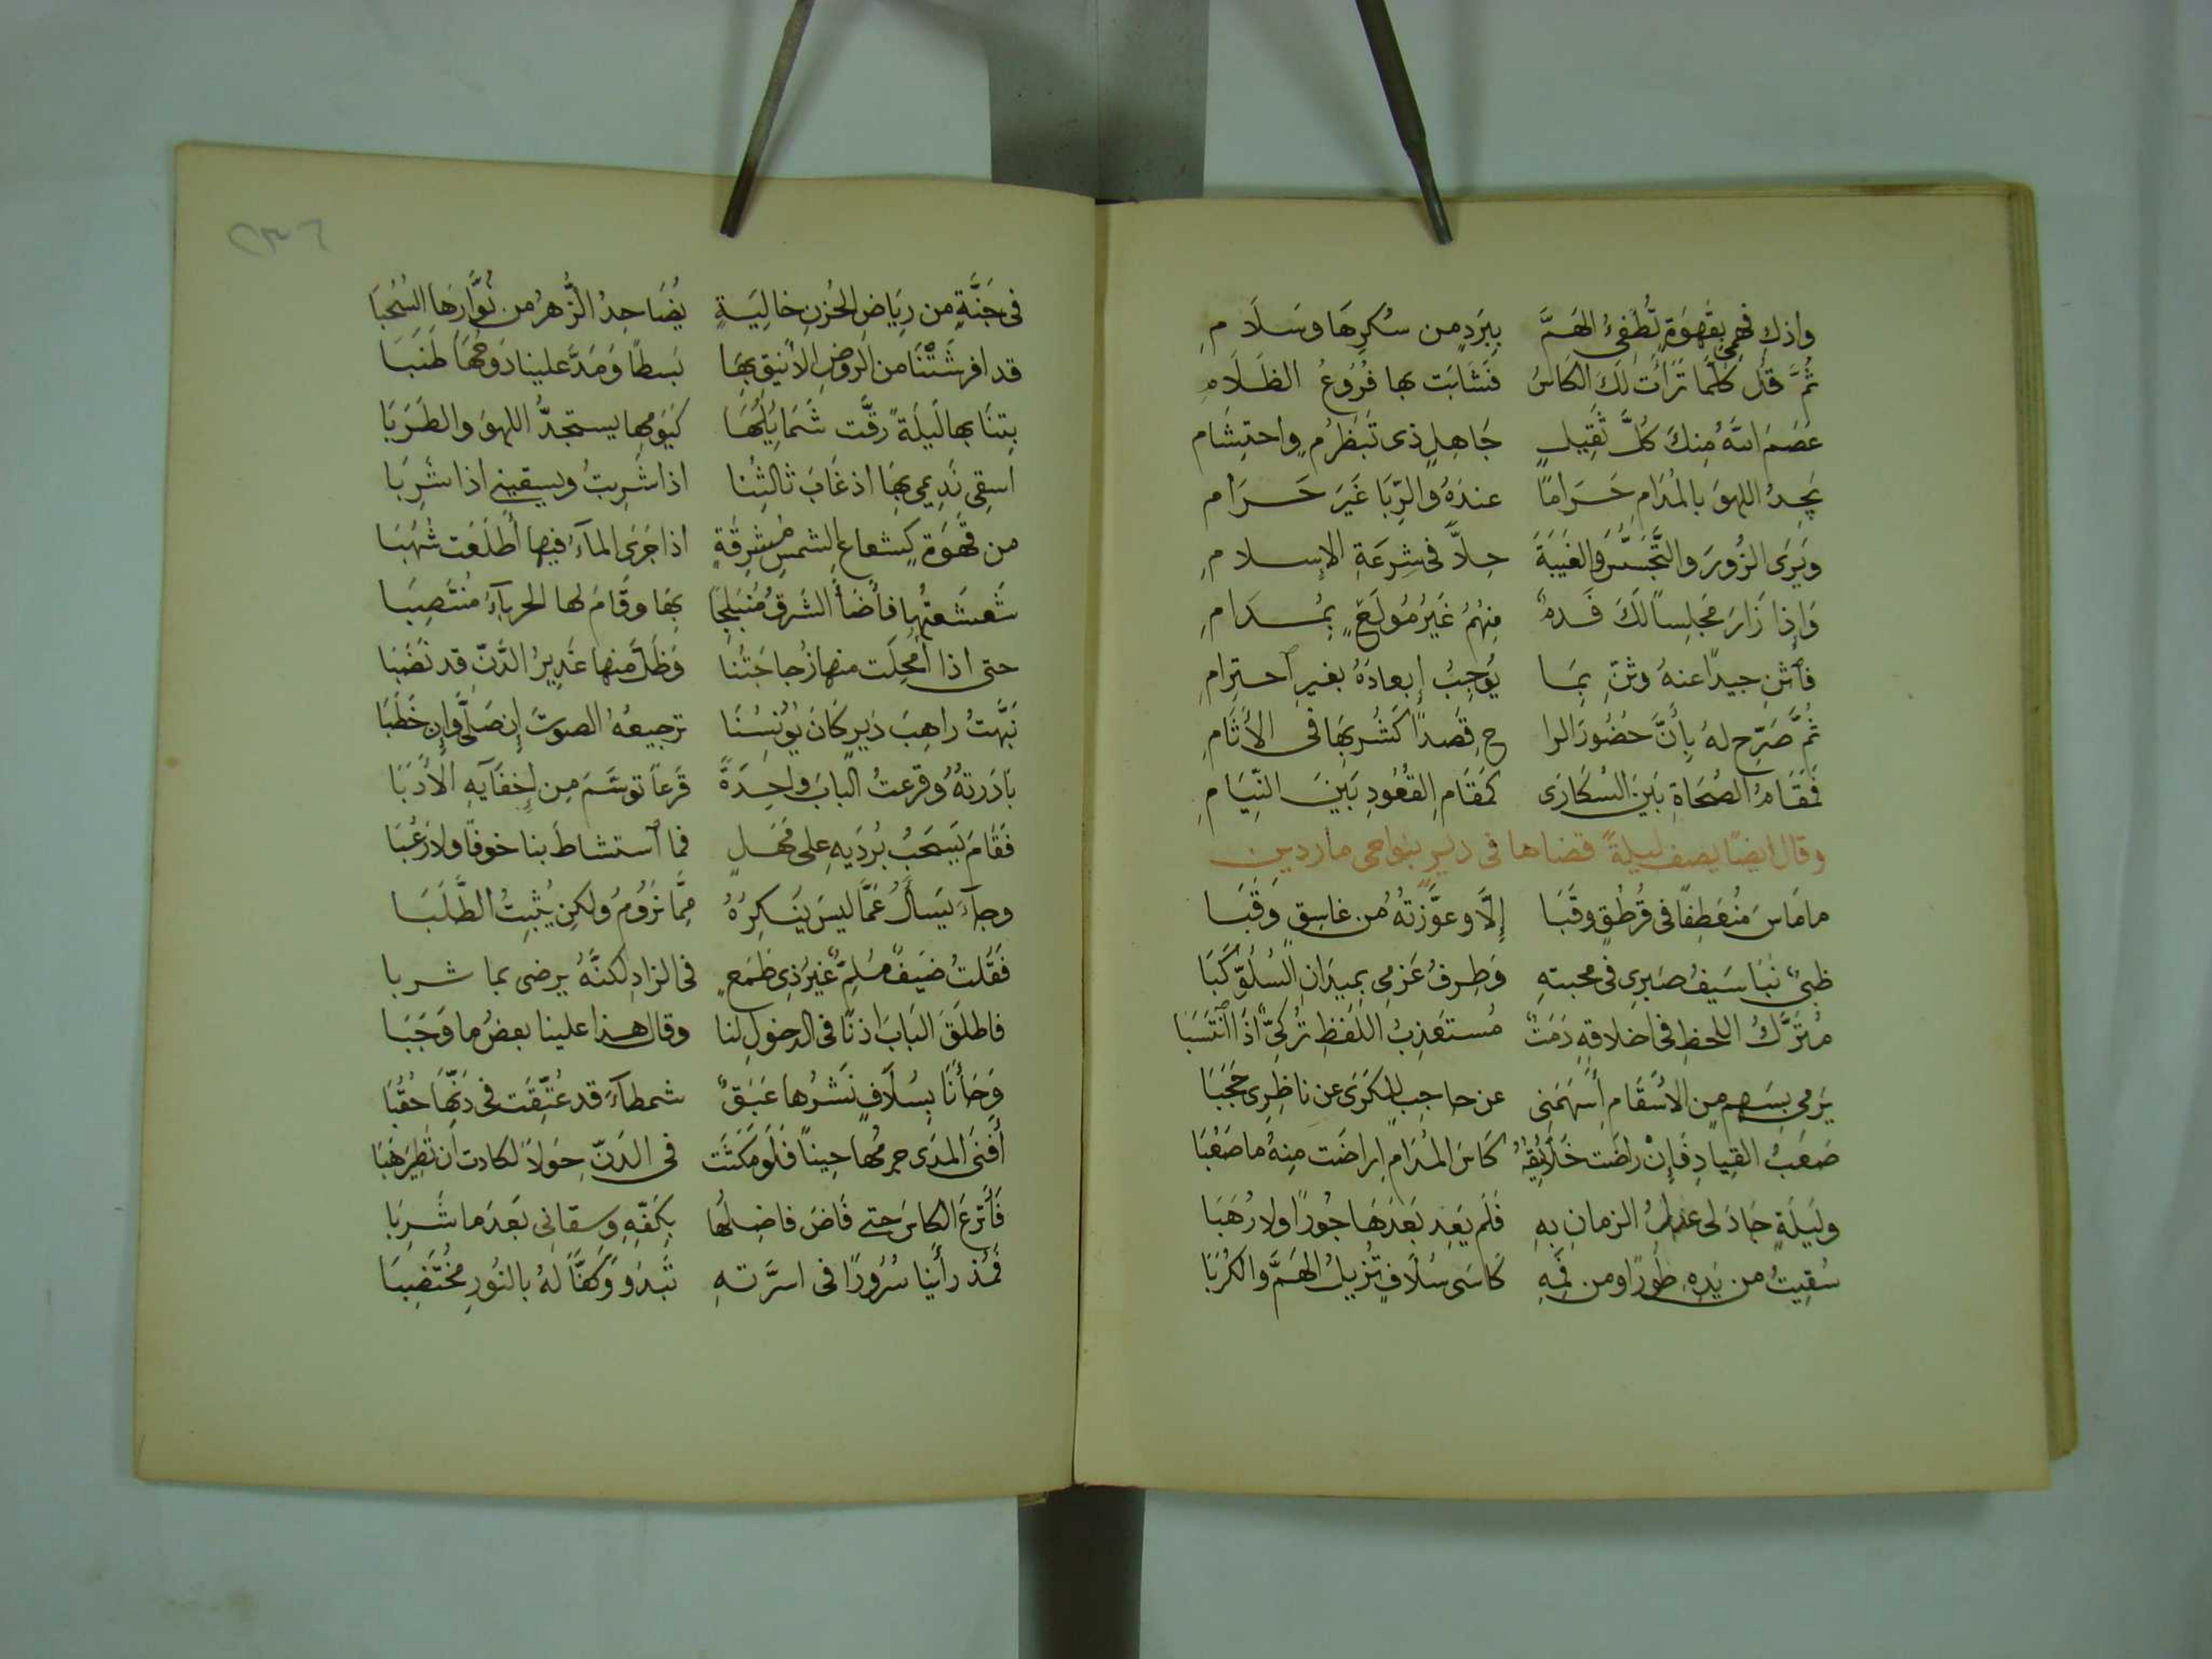 واذكِ فهمي بقهوةٍ تُطفىءُ الهَمَّ ببَردٍ من سُكرِهَا وسَلَامِ
ثُمَّ قُل كلَّمَا تَرَأت لَكَ الكَاسُ فَشَابَت بها فُرُوعُ الظَلَامِ
عَصَمَ اللهُ مِنكَ كُلَّ ثَقِيلٍ جَاهِلٍ ذى تَبَظرُمٍ واحتِشَام
يَجِدُ اللهوَ بالمُدَامِ حَرَامًا عندَهُ والرِّبَا غَيرَ حَرَام
وَيَرَى الزُورَ والتَّجَسُّسَ والغيبَةَ حِلاًّ فى شِرعَةِ الإسلامِ
وَإِذا زَارَ مَجلِسًا لَكَ فَدمٌ مِنهُمُ غَيرُ مُولَعٍ بِمُدَامِ
فاثنِ جيدًا عنهُ وثنِّ بِمَا يُوجِبُ إبعادَهُ بغيرِ احترامِ
ثُمَّ صَرِّح لهُ بِأَنَّ حُضُورَ الرا حِ قَصدًا كَشُربِهَا فى الأَثَامِ
فَمَقَامُ الصُحَاةِ بَينَ السُكَارَى كَمَقَامِ القُعُودِ بَينَ النِّيَامِ
وقال ايضًا يصف ليلةً قضاها فى ديرٍ بنواحى ماردين
ما مَاسَ مُنعَطِفًا فى قُرطُقٍ وقَبَا إِلَّا وعوَّزتُهُ من غاسِقٍ وَقَبَا
ظبىٌ نَبَا سَيفُ صَبرِى فى محبتهِ وَطِرفُ عَزمِى بمِيدَانِ السُلُوِّ كَبَا
مُترَّكُ اللحظِ فى اخلاقهِ دَمَثٌ مُستعذِبُ اللَفظِ تُركِىٌّ اذَا انتَسَبَا
يَرمِى بسَهمٍ مِن الاسقَامِ أَسهَمَنِى عن حاجِبٍ للكَرَى عن ناظِرِى حَجَبَا
صَعبُ القِيادِ فَإِنْ راضَت خَلَائِقَهُ كَاسَ المُدَامِ اراضَت مِنهُ ما صَعُبَا
ولَيلَةٍ جَادَ لى عدلُ الزمانِ بهِ فَلَم يَعِد بَعدَهَا جُورًا ولا رُهَبَا
سُقِيتُ من يَدِهِ طُورًا ومن فَمِهِ كَاسَى سُلافٍ تُزيلُ الهَمَّ والكُرَبَا
٢٣٦
فى جَنَّةٍ من رِيَاضِ الحُزنِ خالِيَةٍ يُضَاحِدُ الزَّهرُ من نُوَّارِهَا السُحُبَا
قد افرشَتْنَا من الروضِ الأنيقِ بِهَا بَسطًا وَمَدَّ علينا دَوحُهَا طُنُبَا
بِتنَا بها لَيلَةً رقَّت شَمَايِلُهَا كَيَومِهِا يستجدُّ اللهوَ والطَرَبَا
اسقِى نَدِيمِى بِهَا اذ غَابَ ثالِثُنا اذا شَرِبتُ ويسقينى اذا شَرِبَا
من قَهوَةٍ كشعاعِ الشمسِ مُشرِقَةٍ اذا جَرَى المآءُ فيها أَطلَعَت شُهُبَا
شَعشَعتُها فأضَأَ الشَرقُ مُنبَلِجًا بِهَا وقَامَ لها الحربآءُ مُنتَصِبَا
حتى اذا أَمحِلَت منها زُجاجَتُنَا وَظَلَّ منها غَدِيرُ الدَّنِّ قد نَضَبَا
نَبَّهتُ راهِبَ دَيرٍ كَانَ يُونِسُنَا ترجيعهُ الصوتَ إن صَلَّى وإن خَطَبَا
بَادَرتهُ وقرعتُ البابَ واحِدَةً قَرعًا توسَّمَ مِن إخفَآيهِ الأَدَبَا
فَقَامَ يَسحَبُ بُردَيهِ على مَهَلٍ فما استشاطَ بنا خوفًا ولا رُعُبَا
وجآءَ يَسأَلُ عَمَّا ليسَ يُنكِرُهُ مِمَّا نَرُومُ ولكن يُثبِتُ الطَّلَبَا
فَقُلتُ ضَيفٌ مُلِمٌّ غيرُ ذِى طَمَعٍ فى الزادِ لكنَّهُ يرضى بما شربا
فاطلَقَ البَابَ اذنًا فى الدخولِ لنا وقال هذا علينا بعضُ ما وَجَبَا
وَجَأنَا بِسُلَافٍ نَشرُها عَبَقٌ شمطآءَ قد عُتِّقَت فى دَنِّهَا حُقُبَا
أفنَى المَدَى جِرمُها حِينًا فَلَو مَكَثَت فى الدَنِّ حِولًا لكادت ان تَطِيرَ هَبَا
فَأَترَعَ الكاسَ حتى فَاضَ فاضِلُهَا بكَفِّهِ وسقانى بَعدَما شَرِبَا
فَمُذ رأَينا سُرُورًا فى اسرَّتهِ تَبدُو وَكَفًّا لهُ بالنُورِ مُختَضِبَا